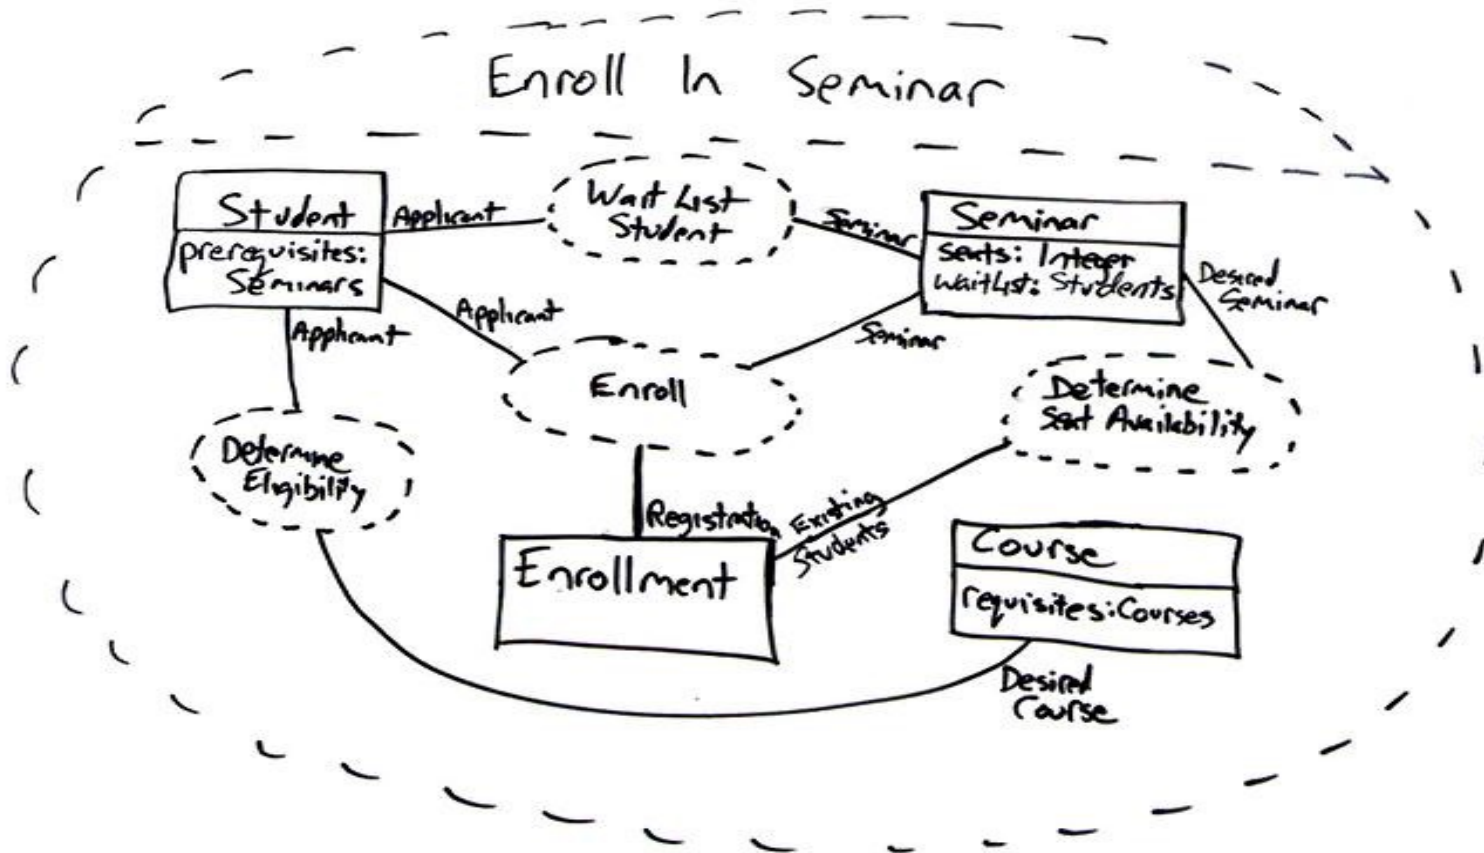 Enroll In Seminar
Student
prerequisites:
Seminars
Applicant
Wait List
Student
Seminar
Seminar
seats: Integer
WaitList: Students
Desired
Seminar
Applicant
Applicant
Enroll
Seminar
Determine
Seat Availability
Determine
Eligibility
Registration
Existing
Students
Enrollment
Course
requisites: Courses
Desired
Course